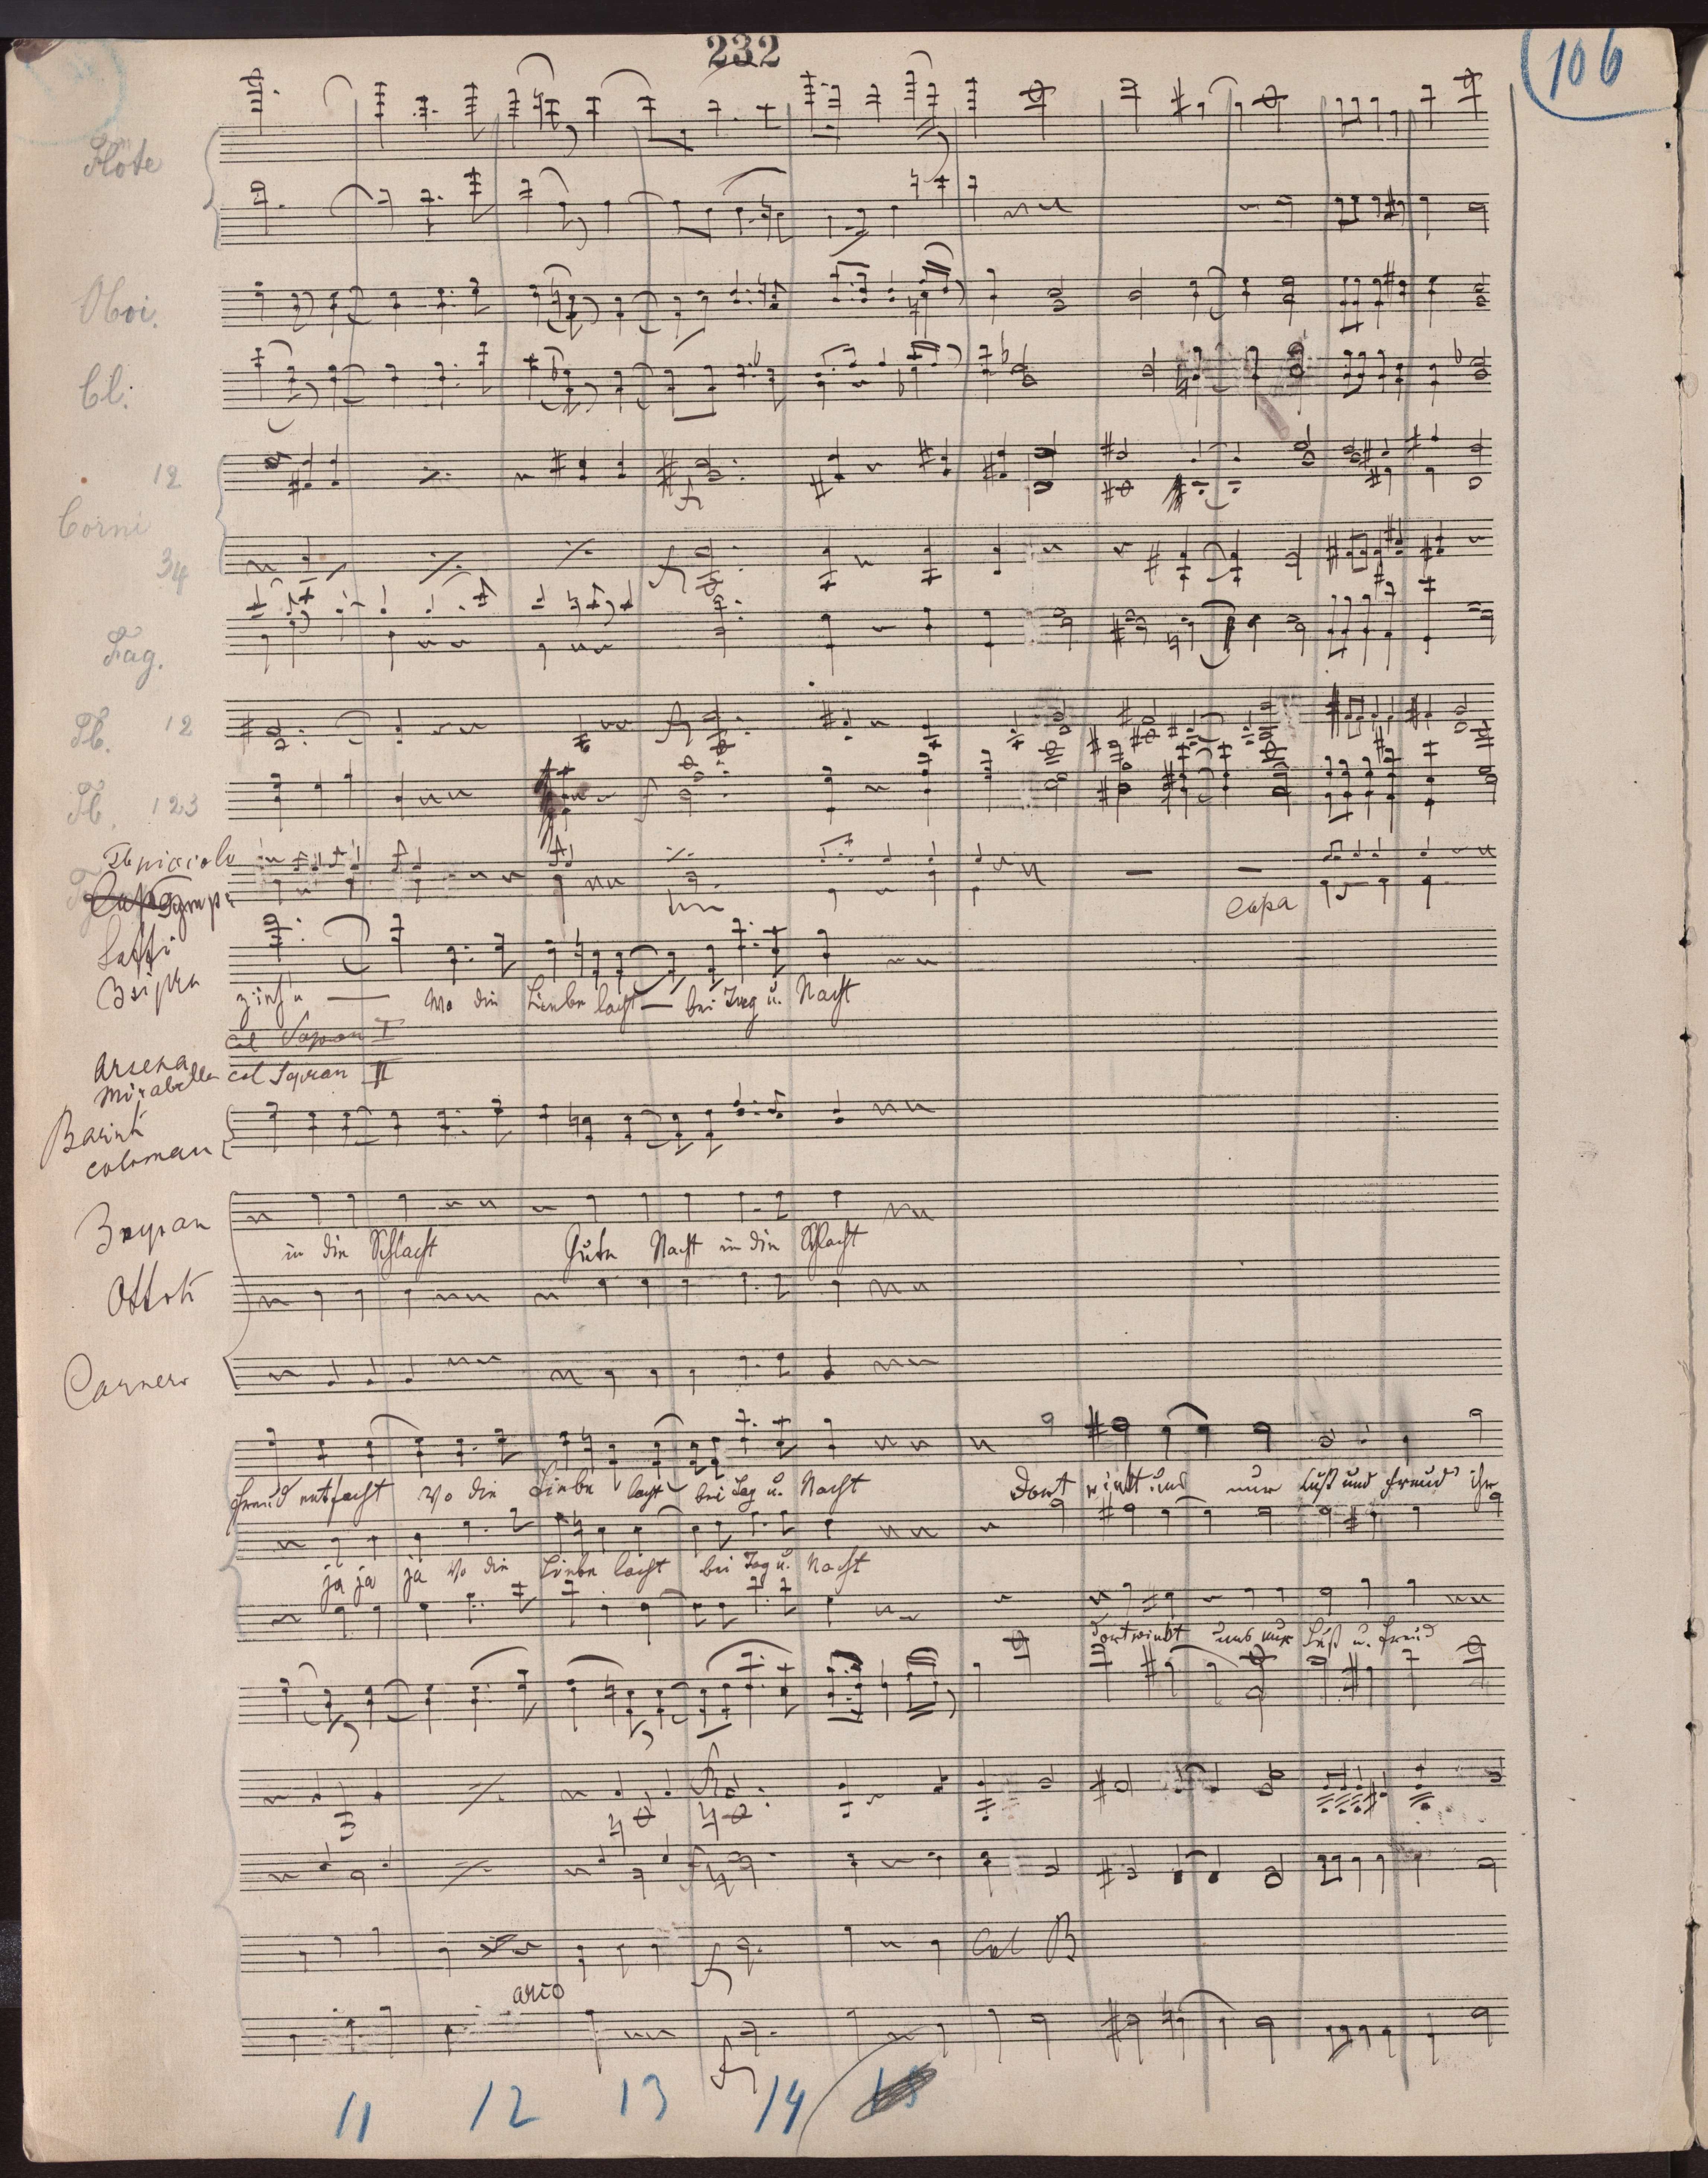 232
106
Flöte
Oboi.
Cl:
12
Corni
34
Fag.
12
123
Tb piccolo
Saffi
Czipra
wo die Liebe lacht — bei Tag u. Nacht
col Sopran I
Arsena
Mirabella col Sopran II
Barink
coloman
Zsupan
in die Schlacht Gute Nacht in die Schlacht
Ottok
Carnero
capa
Freud entfacht Wo die Liebe lacht bei Tag u. Nacht Dort winkt uns nur Lust und Freud' ihr
ja ja ja Wo die Liebe lacht bei Tag u. Nacht
dort winkt uns nur Lust u. Freud
Col B
arco
11 12 13 14 15